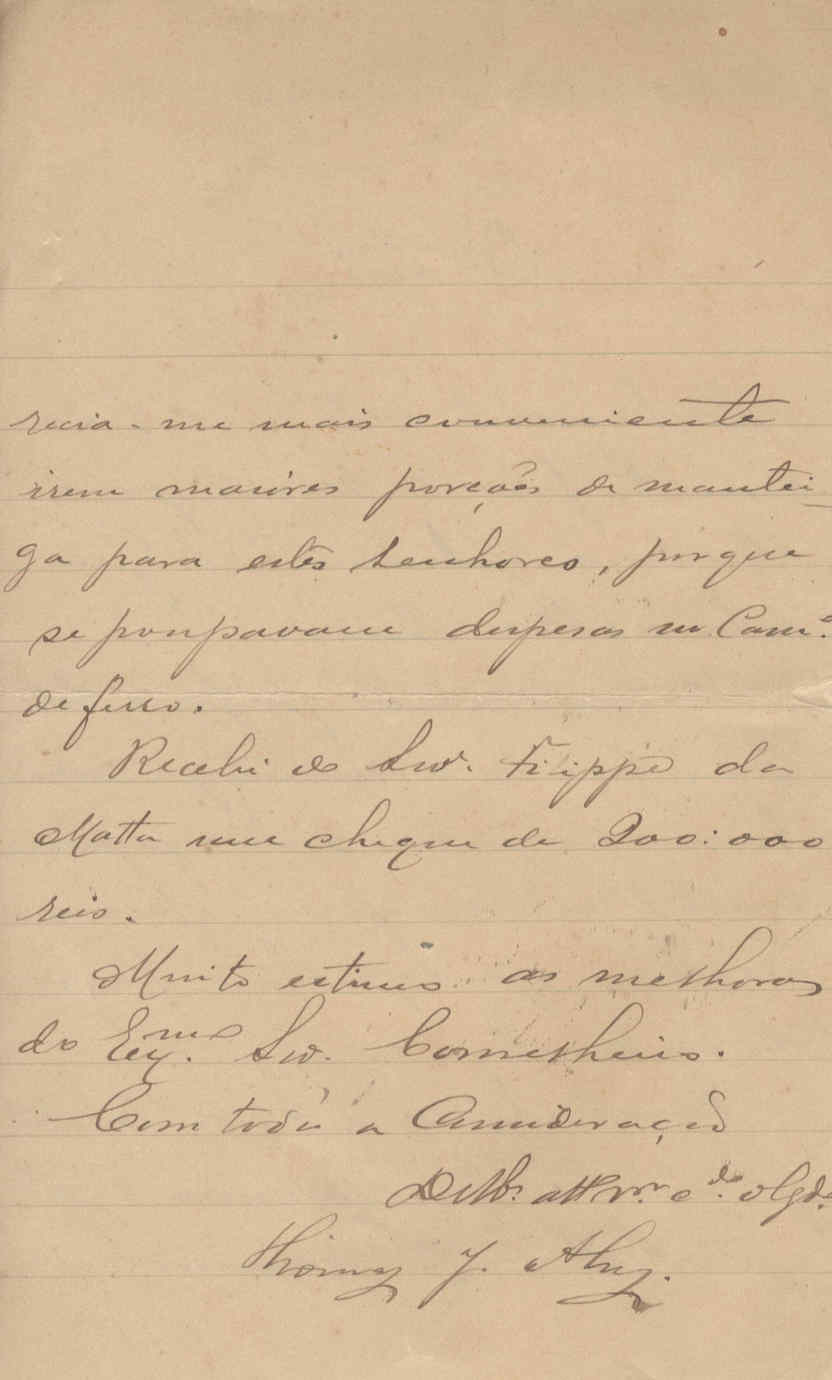 recia-me mais conveniente
irem maiores porções de mantei
ga para estes Senhores, porque
se poupavam despesas no Cam.º
de ferro.
Recebi do Snr. Filippe da
Matta um cheque de 200:000
reis.
Muito estimo as melhoras
do Exmo. Snr. Conselheiro.
Com toda a Consideração
De V. att.º Vnr. c.do obgdo.
Thomaz J. Alvz.